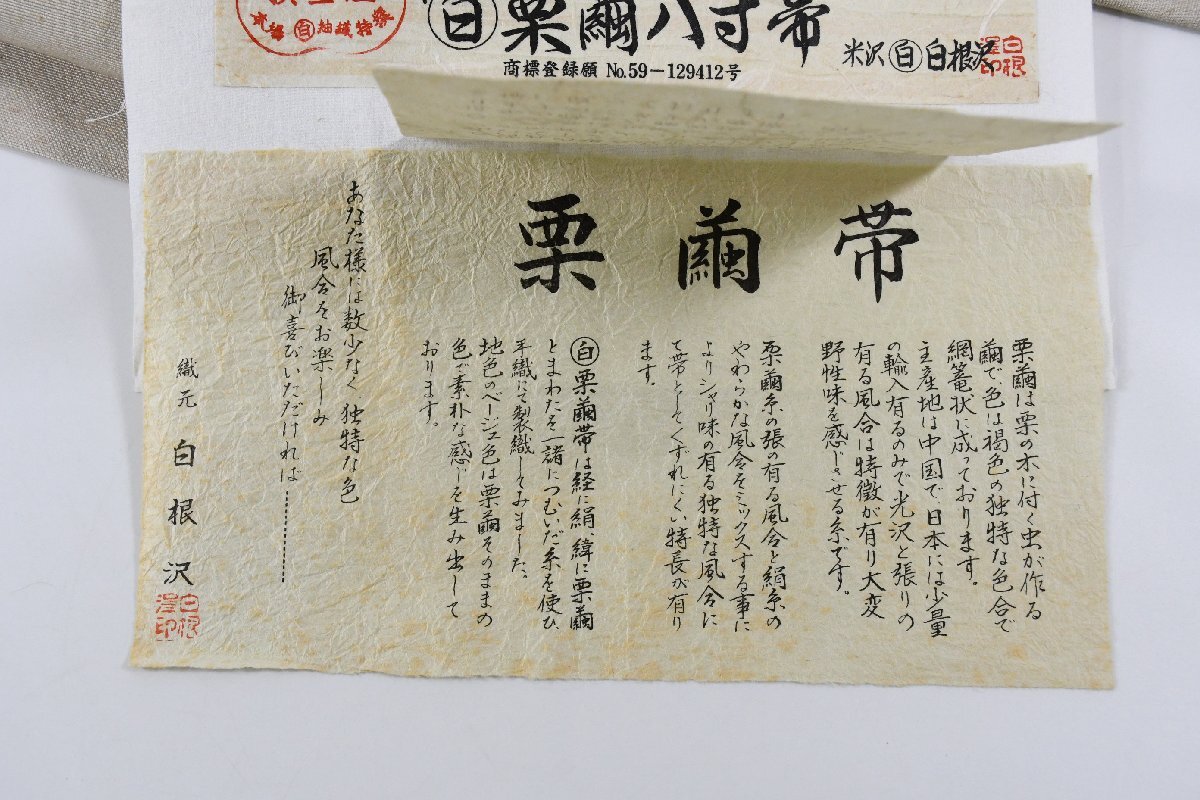 ㊀栗繭八寸帯
商標登録願 No.59-129412号
米沢 白 白根沢
栗繭帯
栗繭は栗の木に付く虫が作る
繭で、色は褐色の独特な色合で
網篭状に成っております。
主産地は中国で日本には少量
の輸入有るのみで光沢と張りの
有る風合は特徴が有り大変
野性味を感じさせる糸です。
栗繭糸の張の有る風合と絹糸の
やわらかな風合をミックスする事に
よりシャリ味の有る独特な風合に
て帯としてくずれにくい特長が有り
ます。
白栗繭帯は経に絹、緯に栗繭
とまわたを一諸につむいだ糸を使ひ、
手織にて製織してみました。
地色のベージュ色は栗繭そのままの
色で素朴な感じを生み出して
おります。
あなた様には数少なく、独特な色
風合をお楽しみ
御喜びいただければ………
織元 白根沢